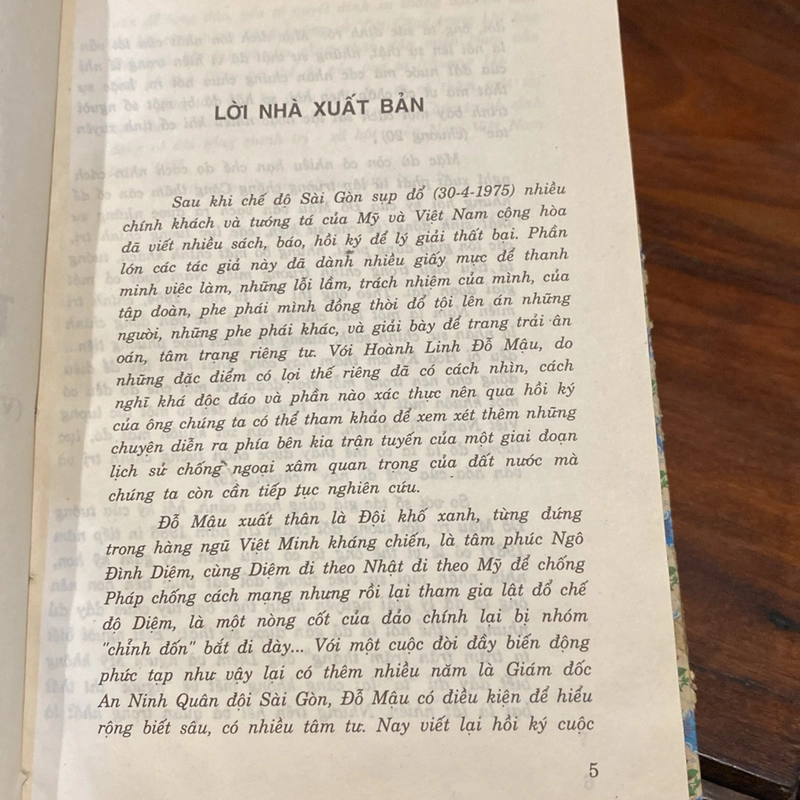 LỜI NHÀ XUẤT BẢN
Sau khi chế độ Sài Gòn sụp đổ (30-4-1975) nhiều
chính khách và tướng tá của Mỹ và Việt Nam cộng hòa
đã viết nhiều sách, báo, hồi ký để lý giải thất bại. Phần
lớn các tác giả này đã dành nhiều giấy mực để thanh
minh việc làm, những lỗi lầm, trách nhiệm của mình, của
tập đoàn, phe phái mình đồng thời đổ tội lên án những
người, những phe phái khác, và giải bày để trang trải ân
oán, tâm trạng riêng tư. Với Hoành Linh Đỗ Mậu, do
những đặc điểm có lợi thế riêng đã có cách nhìn, cách
nghĩ khá độc đáo và phần nào xác thực nên qua hồi ký
của ông chúng ta có thể tham khảo để xem xét thêm những
chuyện diễn ra phía bên kia trận tuyến của một giai đoạn
lịch sử chống ngoại xâm quan trọng của đất nước mà
chúng ta còn cần tiếp tục nghiên cứu.
Đỗ Mậu xuất thân là Đội khố xanh, từng đứng
trong hàng ngũ Việt Minh kháng chiến, là tâm phúc Ngô
Đình Diệm, cùng Diệm đi theo Nhật đi theo Mỹ để chống
Pháp chống cách mạng nhưng rồi lại tham gia lật đổ chế
độ Diệm, là một nòng cốt của đảo chính lại bị nhóm
"chỉnh đốn" bắt đi đày... Với một cuộc đời đầy biến động
phức tạp như vậy lại có thêm nhiều năm là Giám đốc
An Ninh Quân đội Sài Gòn, Đỗ Mậu có điều kiện để hiểu
rộng biết sâu, có nhiều tâm tư. Nay viết lại hồi ký cuộc
5